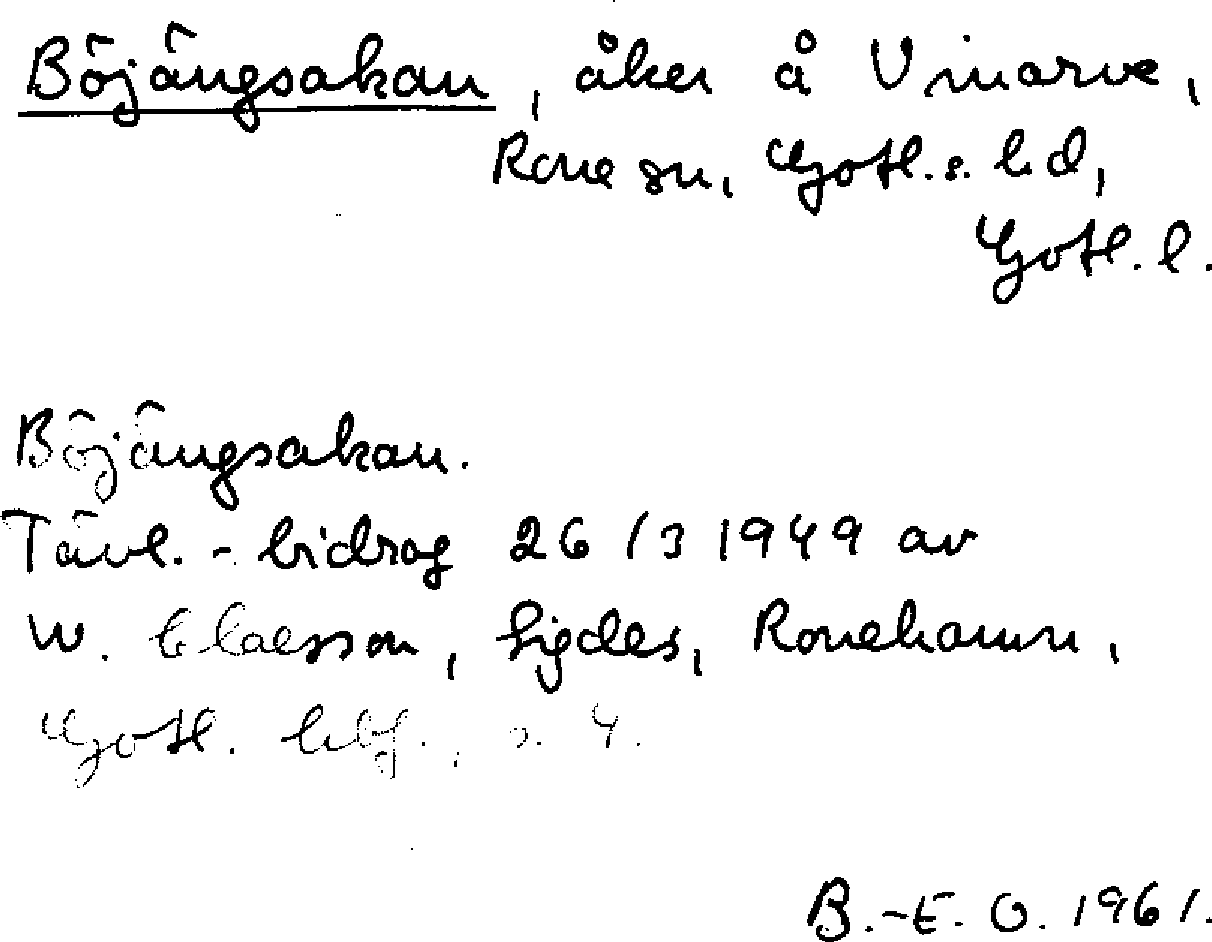 Böjängsakan, åker å Vinarve,
Rone sn, Gotl. s. hd,
Gotl. l.
Böjängsakan.
Tävl.-bidrag 26/3 1949 av
W. Claesson, Sigdes, Ronehamn,
Gotl. hbf., s. 4.
B.-E. O. 1961.